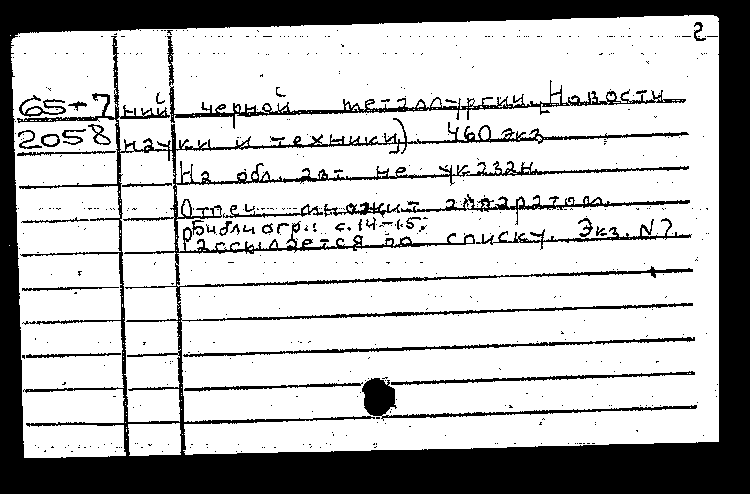 2
65-7 ний черной металлургии. Новости
2058 науки и техники). 460 экз.
На обл. авт. не указан.
Отпеч. множит. аппаратом.
Библиогр.: с. 14-15.
Рассылается по списку. Экз. N7.